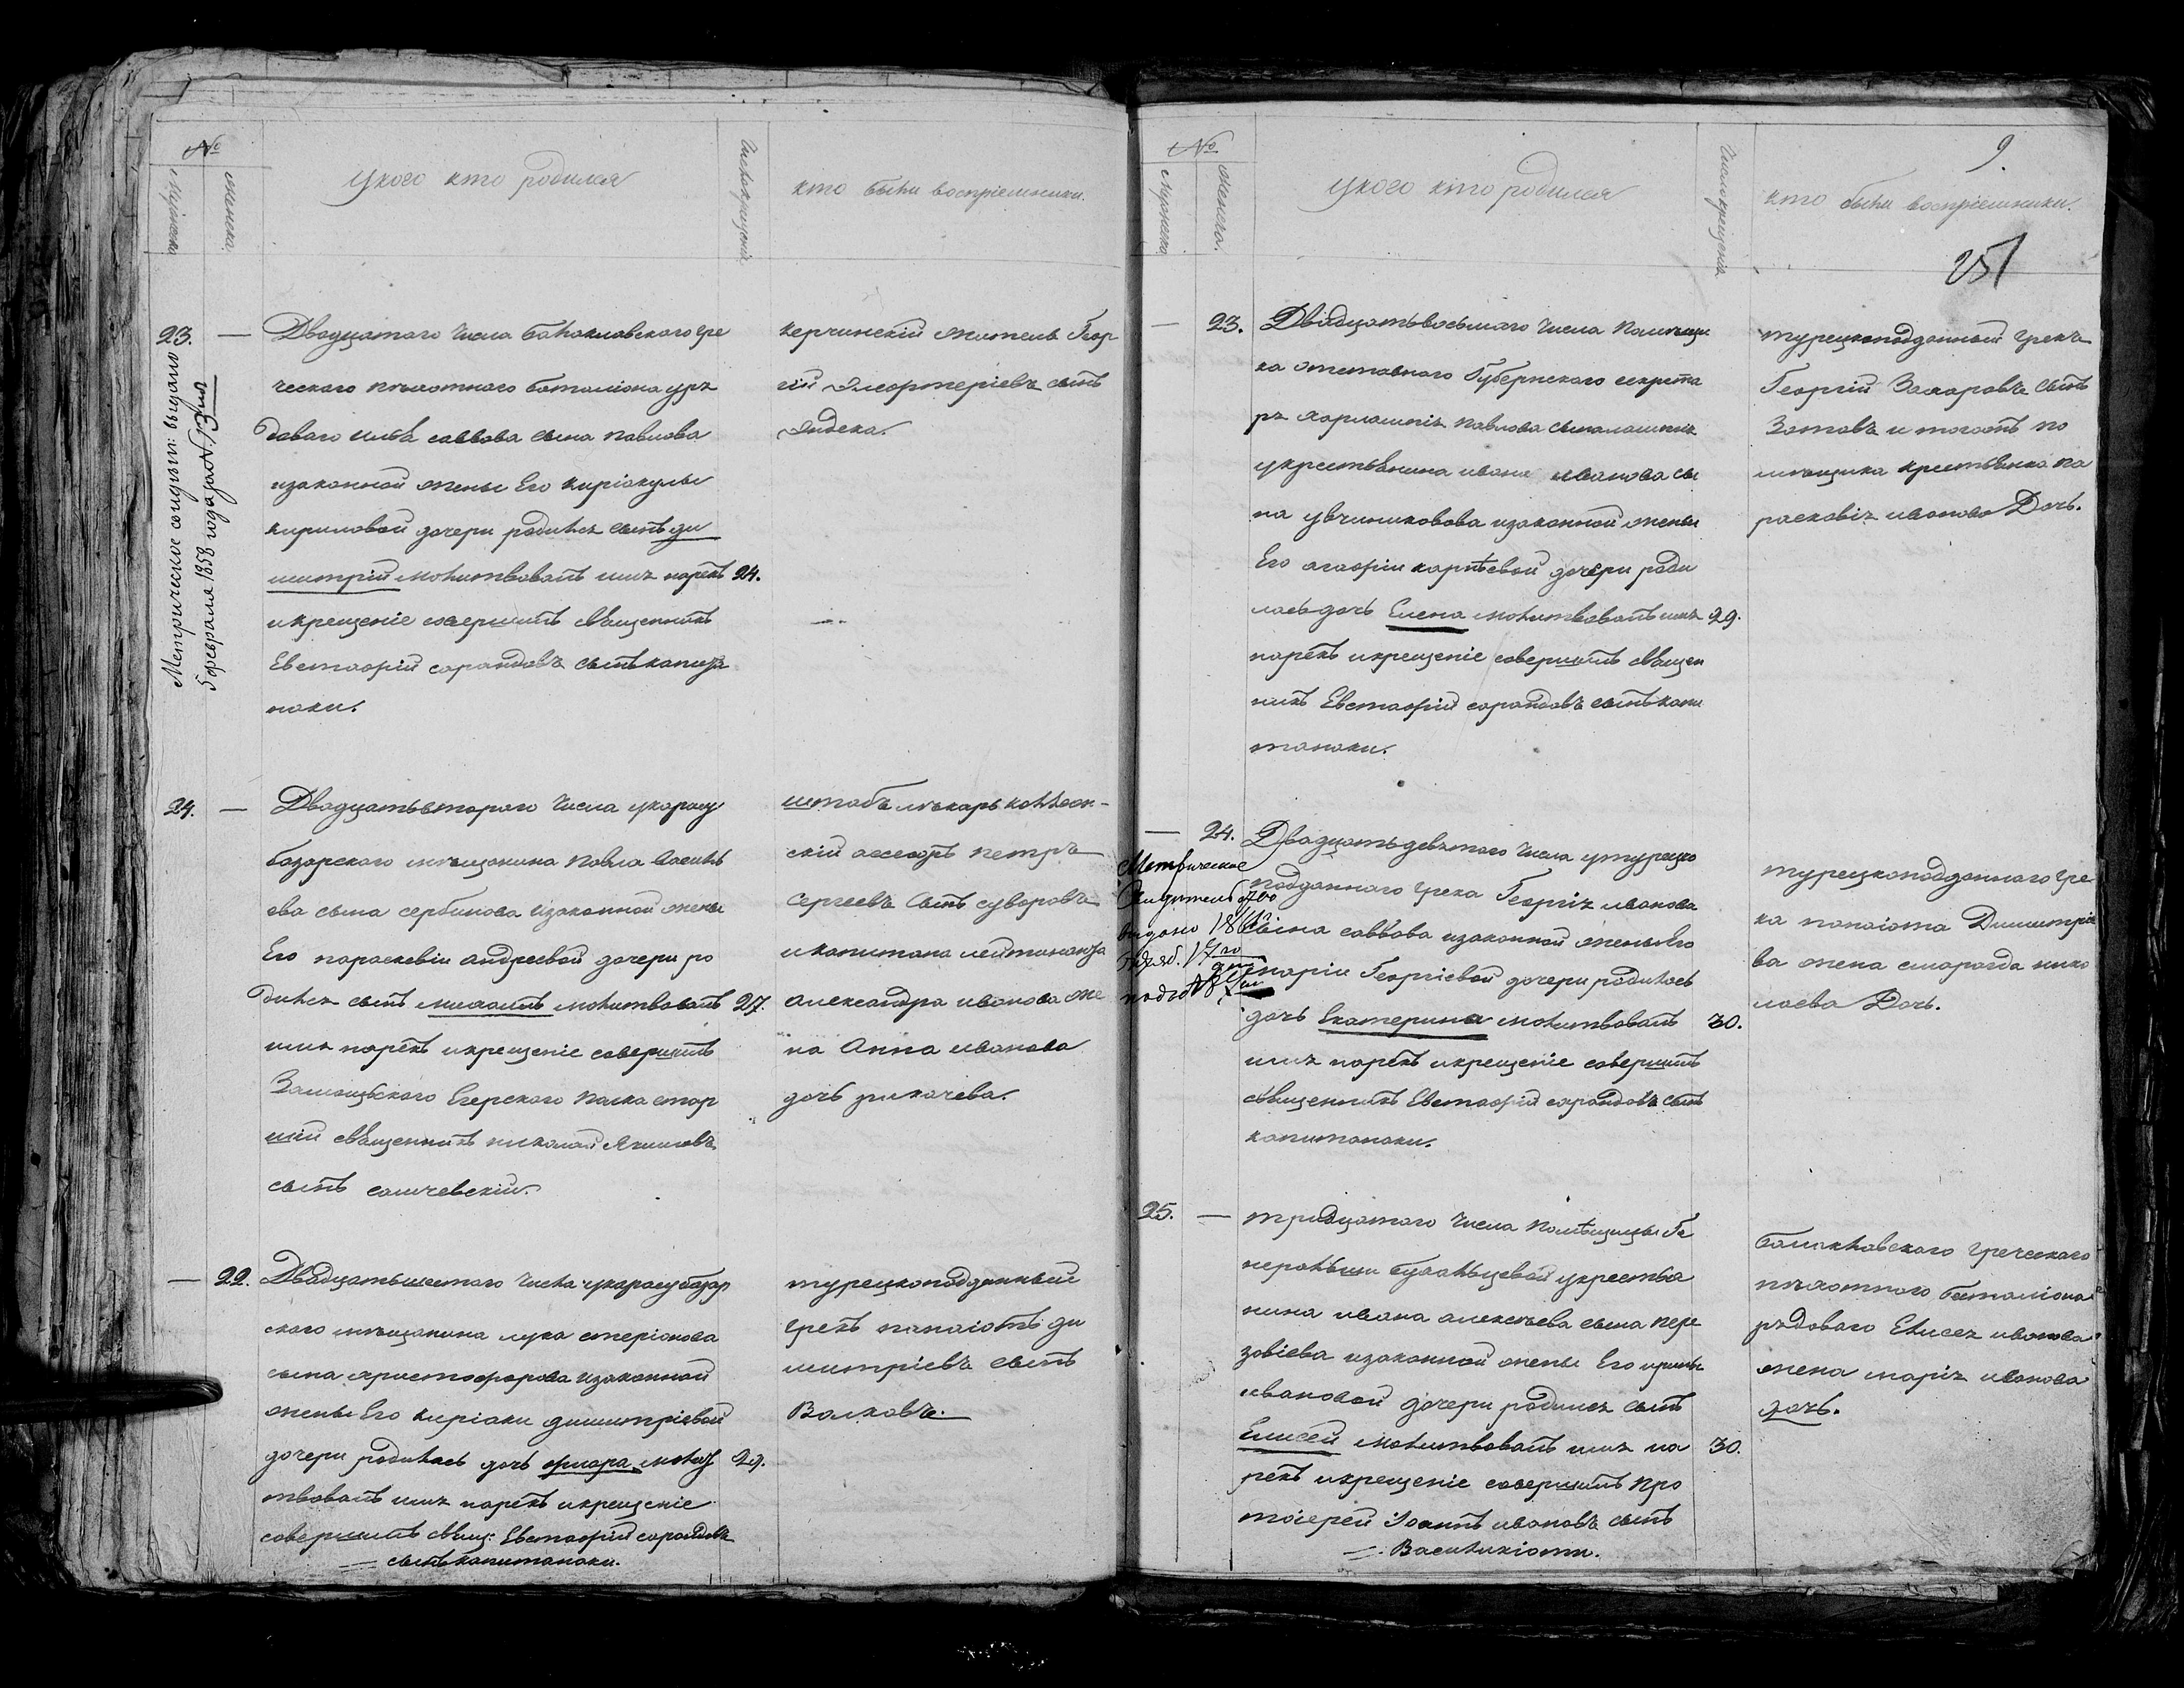 №
Мужеска
Женска
У кого кто родился
Число крещенія
кто были воспріемники.
23.
—
Двадцатаго числа Балаклавского Гре
ческого пѣхотного баталіона уря
доваго Ильѣ саввова сына павлова
изаконной жены Его киріакулы
кириловой дочери родился сынъ ди
митрій молитвовалъ имя нарекъ 24.
икрещеніе совершилъ священникъ
Евстафій сарандовъ сынъ капита
наки.
Керчинскій житель Геор
гій Элефтеріевъ сынъ
Метрическое свидѣт: выдано
февраля 1858 года за № 13 мъ
24.
—
Двадцатьвтораго числа укарасу
базарского мѣщанина павла васил
ева сына сербинова изаконной жены
Его параскевіи андреевой дочери ро
дился сынъ михаилъ молитвовалъ 27.
имя нарекъ икрещеніе совершилъ
Замосцьского Егерского Полка стар
шій священникъ николай Якимовъ
сынъ
штабъ лѣкарь коллеж-
скій ассесоръ петръ
Сергеевъ Сынъ суворовъ
икапитана лейтинанта
александра иванова же
на Анна иванова
дочь рикачева.
—
22.
Двадцатьшестаго числа укарасубазар
ского мѣщанина лука стеріонова
сына христофорова изаконной
жены Его киріаки димитріевой
дочери родилась дочь флора моли 29.
твовалъ имя нарекъ икрещеніе
совершилъ свящ: Евстафій сарандовъ
сынъ капитанаки.
турецкоподданный
грекъ панаіотъ ди
митріевъ сынъ
Волковъ.
№
Мужеска
Женска.
У кого кто родился
Число крещенія
9.
кто были воспріемники.
251
—
23.
Двадцатьвосьмаго числа Помѣщи
ка отставного Губернского секрета
ря харлампія павлова сына
укрестьянина ивана иванова сы
на изаконной жены
Его агафіи карпѣевой дочери роди
лась дочь Елена молитвовалъ имя 29.
нарекъ икрещеніе совершилъ священ
никъ Евстафій сарандовъ сынъ капи
танаки.
турецкоподданный грекъ
Георгій Захаровъ сынъ
Зотовъ и тогожъ по
мѣщика крестьянка па
расковія иванова Дочь.
—
24.
Двадцатьдевятаго числа утурецко
подданного грека Георгія иванова
сына саввова изаконной жены Его
маріи Георгіевой дочери родилась
дочь Екатерина молитвовалъ 30.
имя нарекъ икрещеніе совершилъ
священникъ Евстафій сарандовъ сынъ
капитанаки.
Метрическое
Свидѣтельство
выдано
турецкоподданного гре
ка панаіота Димитріе
ва жена смарагда нико
лаева Дочь.
25.
—
тридцатаго числа Помѣщицы Ге
неральши укрестья
нина ивана алексѣева сына пере
зовіева изаконной жены Его ирины
ивановой дочери родился сынъ
Елисей молитвовалъ имя на 30.
рекъ икрещеніе совершилъ про
тоіерей Іоаннъ ивановъ сынъ
Василикіоти.
балаклавского греческого
пѣхотного баталіона
рядоваго Елисея иванова
жена марія иванова
дочь.